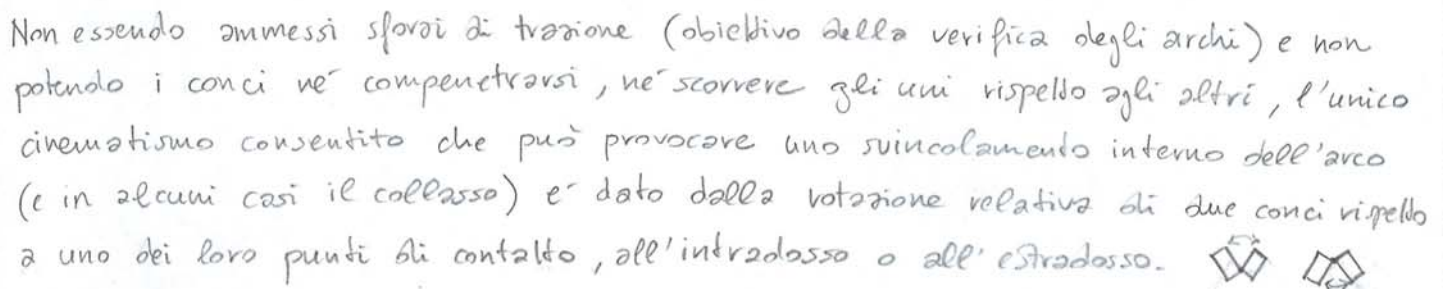 Non essendo ammessi sforzi di trazione (obiettivo della verifica degli archi) e non
potendo i conci né compenetrarsi, né scorrere gli uni rispetto agli altri, l'unico
cinematismo consentito che può provocare uno svincolamento interno dell'arco
(e in alcuni casi il collasso) é dato dalla rotazione relativa di due conci rispetto
a uno dei loro punti di contatto, all'intradosso o all'estradosso.